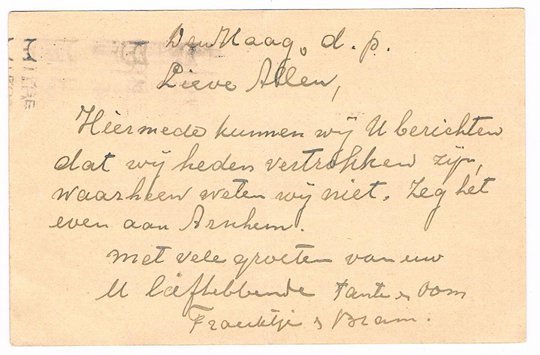 Den Haag, d. p.
Lieve Allen,
Hiermede kunnen wij U berichten
dat wij heden vertrokken zijn,
waarheen weten wij niet. Zeg het
even aan Arnhem.
Met vele groeten van uw
U liefhebbende Tante & Oom
& Bram.